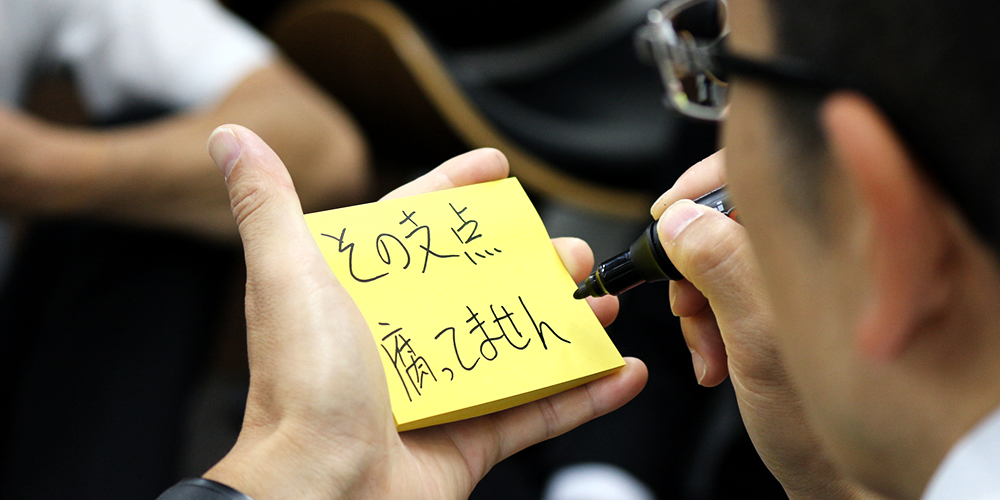 その支点
腐ってません